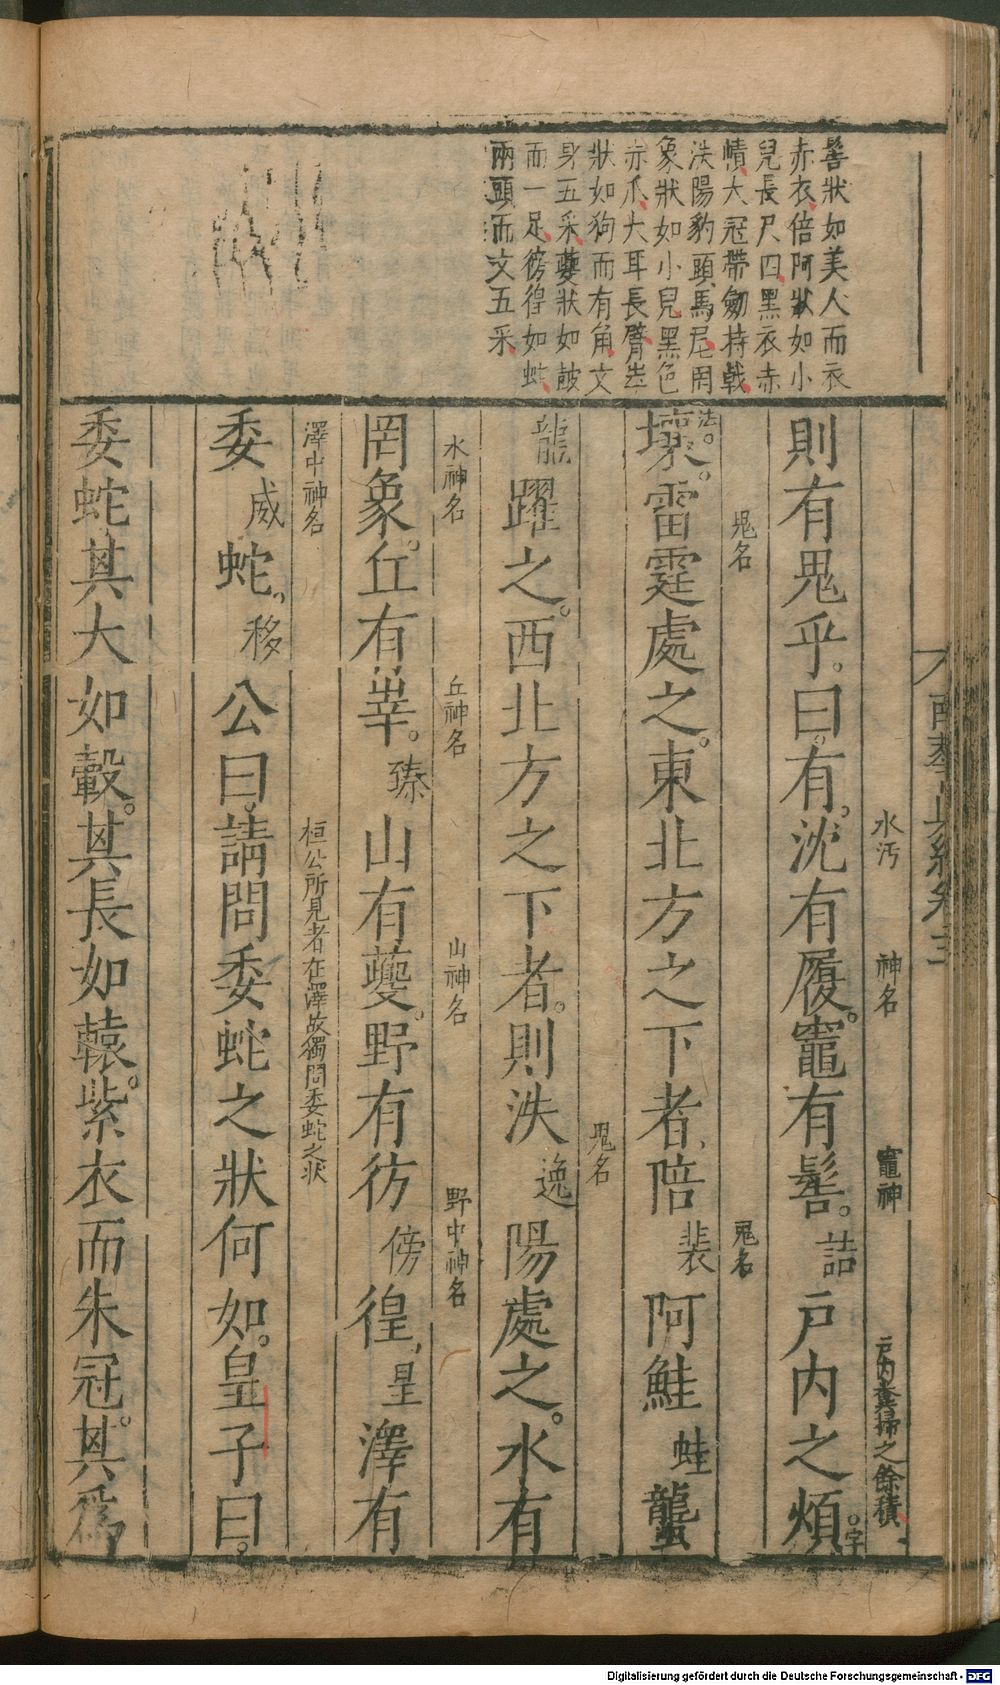 髻狀如美人而衣
赤衣倍阿狀如小
兒長尺四黑衣赤
幘大冠帶劒持戟
泆陽豹頭馬尾罔
象狀如小兒黑色
赤爪大耳長臂峷
狀如狗而有角文
身五采夔狀如鼓
而一足徬徨如蛇
兩頭而文五采
南華真經卷三
水汚 神名 竈神 戶内糞掃之餘積
則有鬼乎。曰。有。沈有履。竈有髻。詰戶内之煩。字
鬼名 鬼名
法。壤。雷霆處之。東北方之下者、陪裴阿鮭蛙蠪
鬼名
龍躍之。西北方之下者。則泆逸陽處之。水有
水神名 丘神名 山神名 野中神名
罔象。丘有峷。臻山有夔。野有彷傍徨、皇澤有
澤中神名 桓公所見者在澤故獨問委蛇之狀
委威蛇。移公曰。請問委蛇之狀何如。皇子曰。
委蛇其大如轂。其長如轅。紫衣而朱冠。其爲
Digitalisierung gefördert durch die Deutsche Forschungsgemeinschaft - DFG